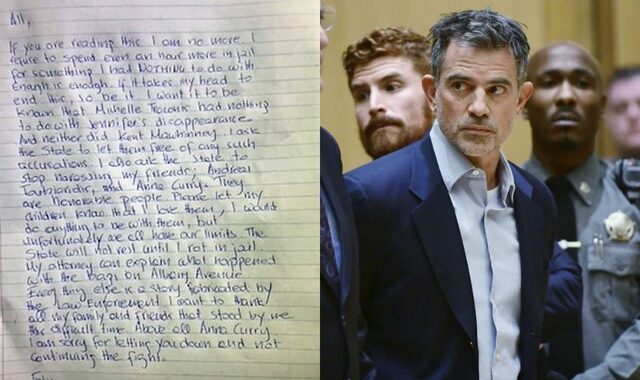 All,
If you are reading this I am no more. I
refuse to spend even an hour more in jail
for something I had NOTHING to do with
Enough is enough. If it takes my head to
end this, so be it. I want it to be
known that Michelle Troconis had nothing
to do with Jennifer's disappearance.
And neither did Kent Mawhinney. I ask
the State to let them free of any such
accusations. I also ask the State to
stop harassing my friends, Andreas
Toutziaridis, and Anna Curry. They
are honorable people. Please let my
children know that I love them, I would
do anything to be with them, but
unfortunately we all have our limits. The
State will not rest until I rot in jail.
My attorney can explain what happened
with the bags on Albany Avenue
Everything else is a story fabricated by
the Law Enforcement. I want to thank
all my family and friends that stood by me
this difficult time. Above all Anna Curry.
I am sorry for letting you down and not
continuing the fight.